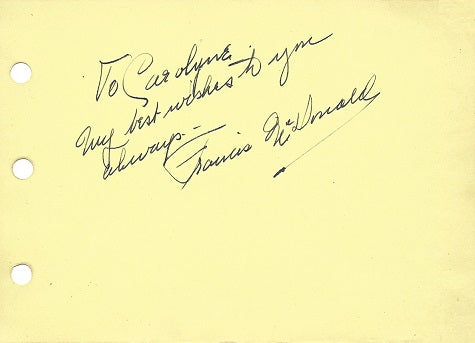 To Carolyne
My best wishes to you
always —
Francis McDonald